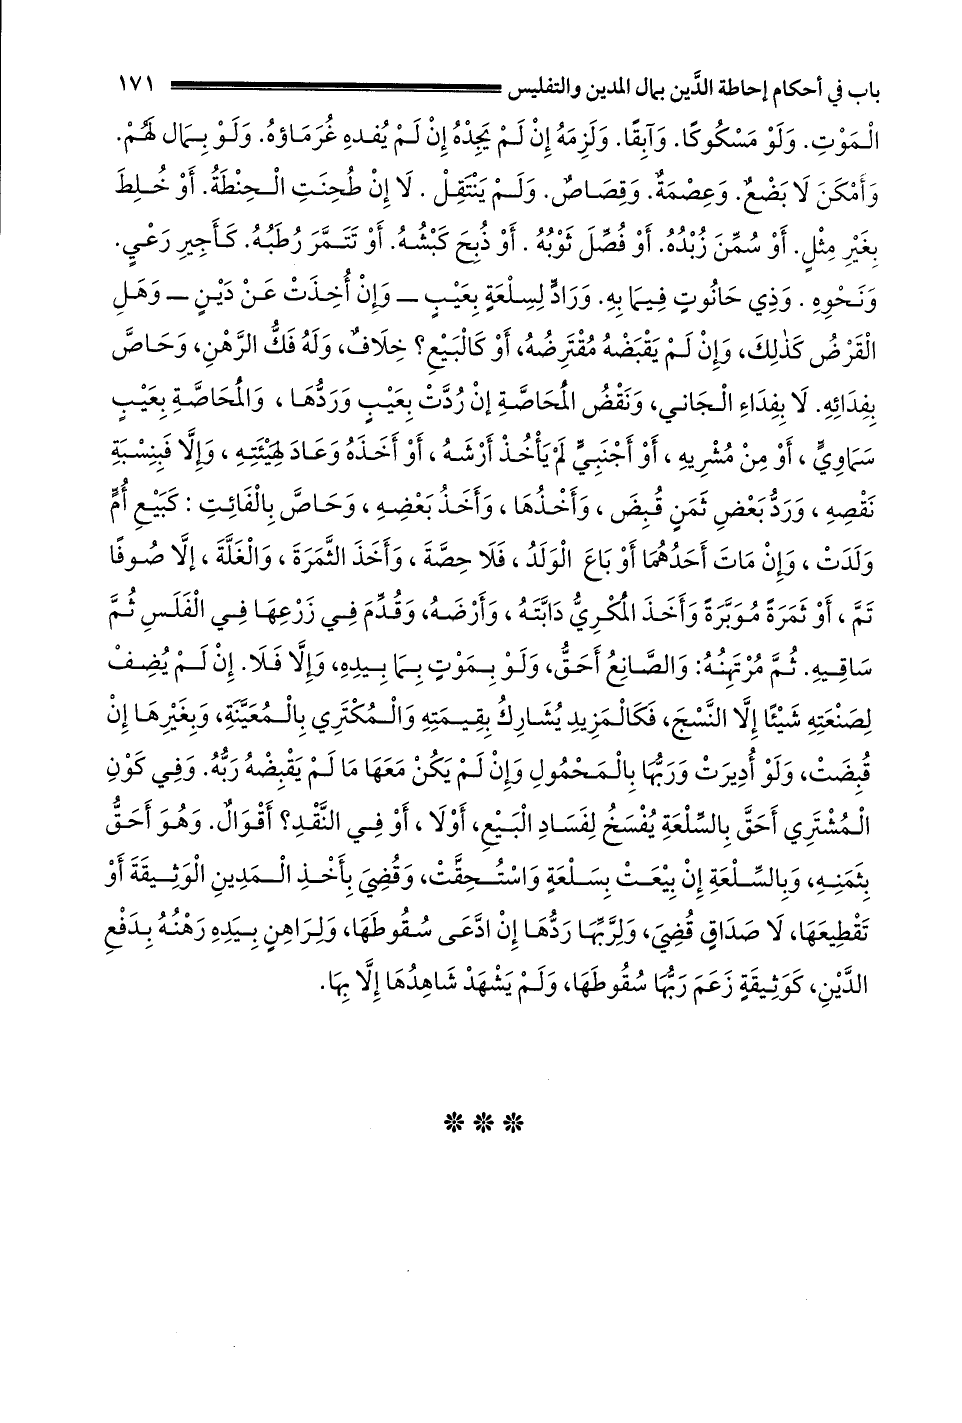 باب في أحكام إحاطة الدَّين بمال المدين والتفليس ١٧١
الْمَوْتِ. وَلَوْ مَسْكُوكًا. وَآبِقًا. وَلَزِمَهُ إِنْ لَمْ يَجِدْهُ إِنْ لَمْ يُفْدِهِ غُرَمَاؤُهُ. وَلَوْ بِمَالِ لَهُمْ.
وَأَمْكَنَ لَا بَضْعٌ. وَعِصْمَةٌ. وَقِصَاصٌ. وَلَمْ يَنْتَقِلْ . لَا إِنْ طُحِنَتِ الْحِنْطَةُ. أَوْ خُلِطَ
بِغَيْرِ مِثْلٍ. أَوْ سُمِّنَ زُبْدُهُ. أَوْ فُصِّلَ ثَوْبُهُ . أَوْ ذُبِحَ كَبْشُهُ. أَوْ تَتَمَّرَ رُطَبُهُ. كَأَجِيرِ رَعْيٍ.
وَنَحْوِهِ . وَذِي حَانُوتٍ فِيمَا بِهِ. وَرَادٍّ لِسِلْعَةٍ بِعَيْبٍ – وَإِنْ أُخِذَتْ عَنْ دَيْنٍ – وَهَلِ
الْقَرْضُ كَذَلِكَ، وَإِنْ لَمْ يَقْبَضْهُ مُقْتَرِضُهُ، أَوْ كَالْبَيْعِ؟ خِلَافٌ، وَلَهُ فَكُّ الرَّهْنِ، وَحَاصَّ
بِفِدَائِهِ. لَا بِفِدَاءِ الْجَانِي، وَنَقْضُ الْمُحَاصَّةِ إِنْ رُدَّتْ بِعَيْبٍ وَرَدُّهَا ، وَالْمُحَاصَّةِ بِعَيْبٍ
سَمَاوِيٍّ ، أَوْ مِنْ مُشْرِيهِ ، أَوْ أَجْنَبِيٍّ لَمْ يَأْخُذْ أَرْشَهُ ، أَوْ أَخَذَهُ وَعَادَ لِهَيْئَتِهِ ، وَإِلَّا فَبِنِسْبَةِ
نَقْصِهِ ، وَرَدُّ بَعْضِ ثَمَنٍ قُبِضَ ، وَأَخْذُهَا ، وَأَخَذُ بَعْضِهِ ، وَحَاصَّ بِالْفَائِتِ : كَبَيْعِ أُمٍّ
وَلَدَتْ ، وَإِنْ مَاتَ أَحَدُهُمَا أَوْ بَاعَ الْوَلَدُ ، فَلَا حِصَّةَ ، وَأَخَذَ الثَّمَرَةَ ، وَالْغَلَّةَ ، إِلَّا صُوفًا
تَمَّ ، أَوْ ثَمَرَةً مُوَبَّرَةً وَأَخَذَ الْمُكْرِيُّ دَابَّتَهُ ، وَأَرْضَهُ، وَقُدِّمَ فِي زَرْعِهَا فِي الْفَلَسِ ثُمَّ
سَاقِيهِ. ثُمَّ مُرْتَهِنُهُ: وَالصَّانِعُ أَحَقُّ، وَلَوْ بِمَوْتٍ بِمَا بِيدِهِ، وَإِلَّا فَلَا. إِنْ لَمْ يُضِفْ
لِصَنْعَتِهِ شَيْئًا إِلَّا النَّسْجَ، فَكَالْمَزِيدِ يُشَارِكُ بِقِيمَتِهِ وَالْمُكْتَرِي بِالْمُعَيَّنَةِ، وَبِغَيْرِهَا إِنْ
قُبِضَتْ، وَلَوْ أُدِيرَتْ وَرَبُّهَا بِالْمَحْمُولِ وَإِنْ لَمْ يَكُنْ مَعَهَا مَا لَمْ يَقْبِضْهُ رَبُّهُ. وَفِي كَوْنِ
الْمُشْتَرِي أَحَقَّ بِالسِّلْعَةِ يُفْسَخُ لِفَسَادِ الْبَيْعِ، أَوْلَا ، أَوْ فِي النَّقْدِ؟ أَقْوَالٌ. وَهُوَ أَحَقُّ
بِثَمَنِهِ، وَبِالسِّلْعَةِ إِنْ بِيْعَتْ بِسَلْعَةٍ وَاسْتُحِقَّتْ، وَقُضِيَ بِأَخْذِ الْمَدِينِ الْوَثِيقَةَ أَوْ
تَقْطِيعَهَا، لَا صَدَاقٍ قُضِيَ، وَلِرَبِّهَا رَدُّهَا إِنْ ادَّعَى سُقُوطَهَا، وَلِرَاهِنٍ بِيَدِهِ رَهْنُهُ بِدَفْعِ
الدَّيْنِ، كَوَثِيقَةٍ زَعَمَ رَبُّهَا سُقُوطَهَا، وَلَمْ يَشْهَدْ شَاهِدُهَا إِلَّا بِهَا.